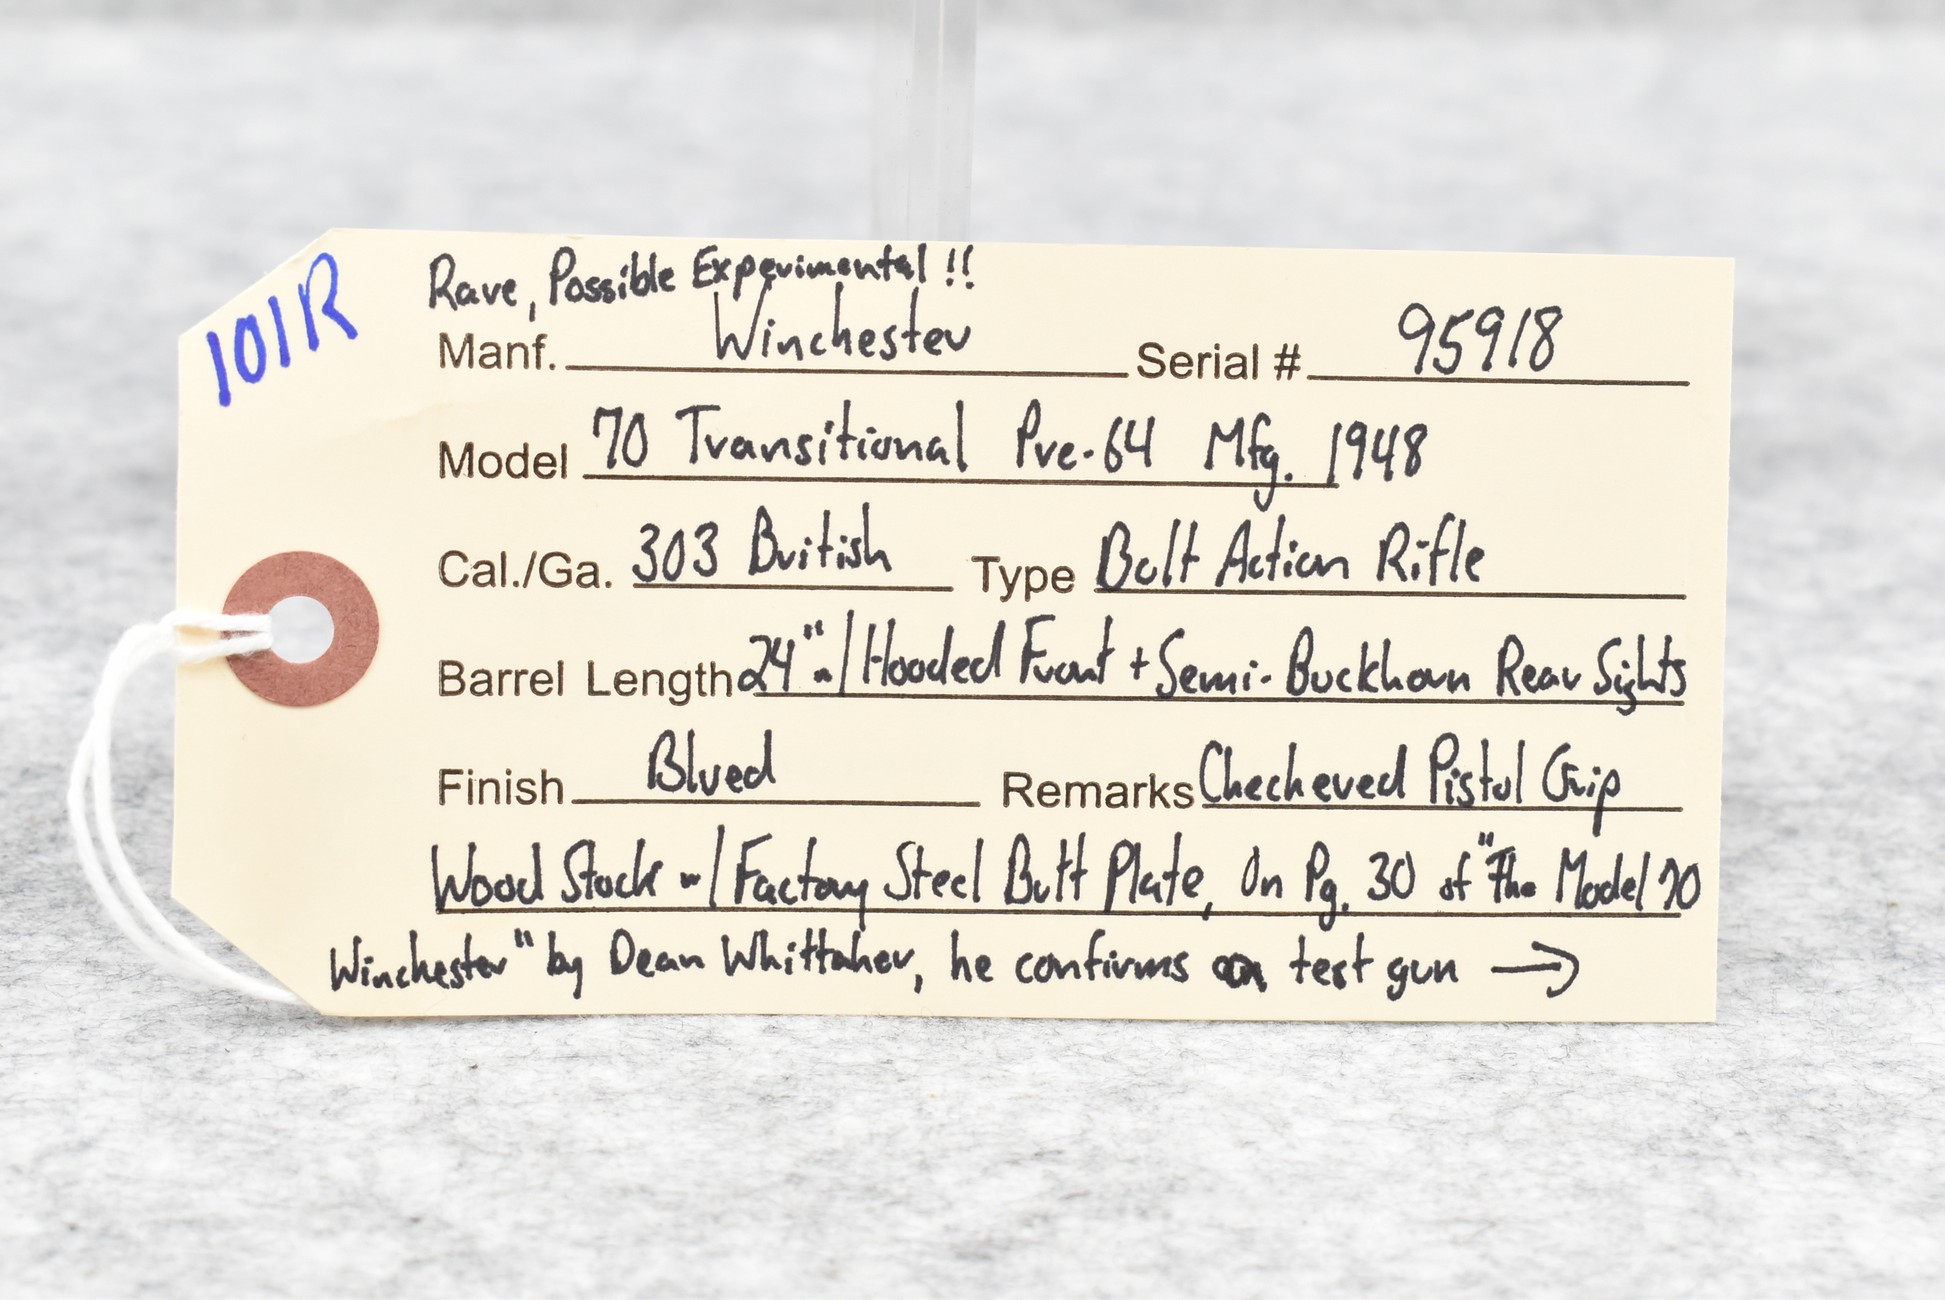 101R
Rare, Possible Experimental!!
Manf. Winchester Serial # 95918
Model 70 Transitional Pre-64 Mfg. 1948
Cal./Ga. 303 British Type Bolt Action Rifle
Barrel Length 24" w/ Hooded Front + Semi-Buckhorn Rear Sights
Finish Blued Remarks Checkered Pistol Grip
Wood Stock w/ Factory Steel Butt Plate, On Pg. 30 of "The Model 70
Winchester" by Dean Whittaker, he confirms a test gun →